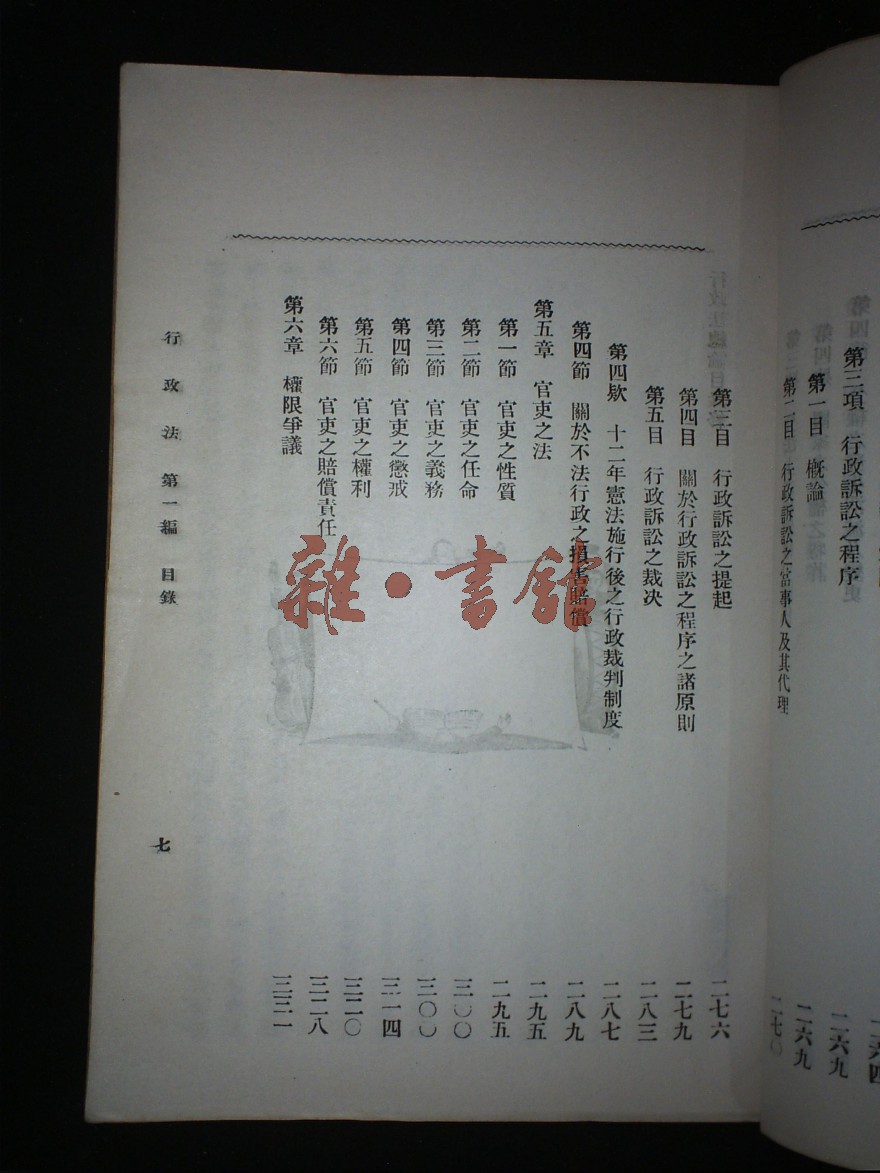 第三項　行政訴訟之程序
第一目　概論　二六九
第二目　行政訴訟之當事人及其代理　二六九
第三目　行政訴訟之提起　二七六
第四目　關於行政訴訟之程序之諸原則　二七九
第五目　行政訴訟之裁決　二八三
第四欵　十二年憲法施行後之行政裁判制度　二八七
第四節　關於不法行政之損害賠償　二八九
第五章　官吏之法　二九五
第一節　官吏之性質　二九五
第二節　官吏之任命　三〇〇
第三節　官吏之義務　三〇〇
第四節　官吏之懲戒　三一四
第五節　官吏之權利　三二〇
第六節　官吏之賠償責任　三二八
第六章　權限爭議　三三一
行政法　第一編　目錄
七
雜·書館